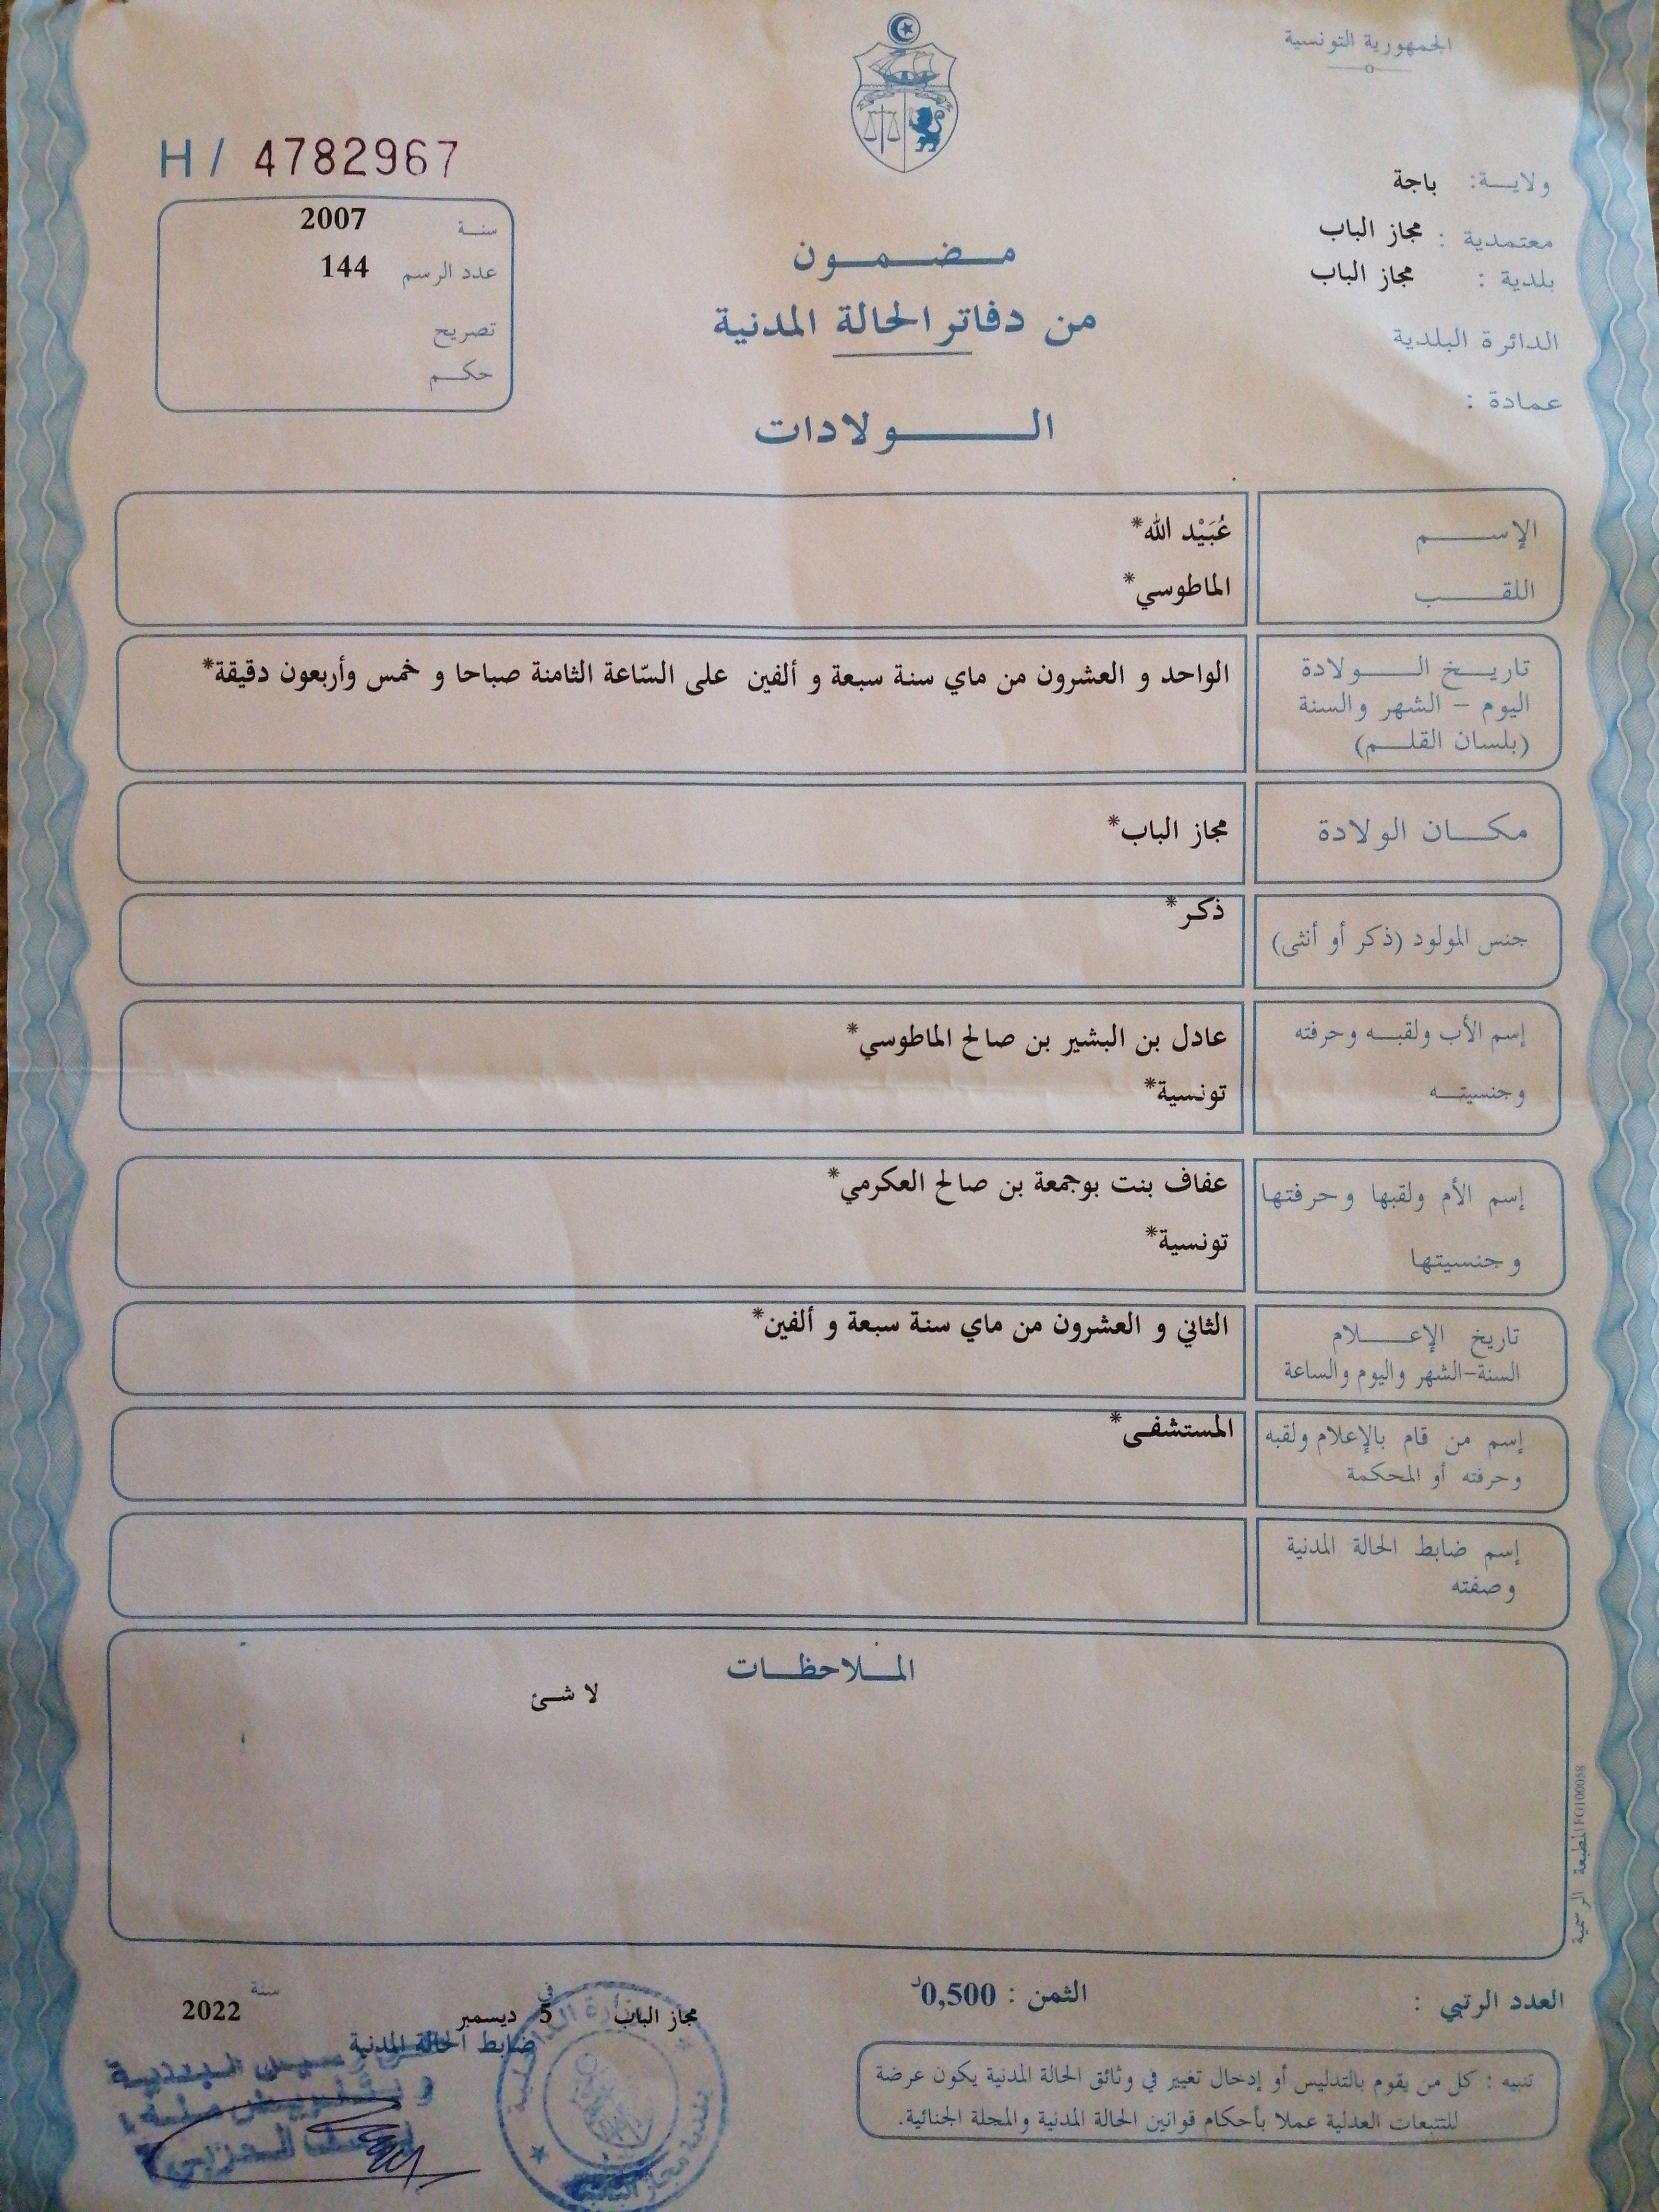 الجمهورية التونسية
H / 4782967
ولايــة: باجة
معتمدية : مجاز الباب
بلدية : مجاز الباب
الدائرة البلدية
عمادة :
سنة 2007
عدد الرسم 144
تصريح
حكم
مضمون
من دفاتر الحالة المدنية
الولادات
الإسم عُبَيْد الله*
اللقب الماطوسي*
تاريخ الولادة الواحد و العشرون من ماي سنة سبعة و ألفين على السّاعة الثامنة صباحا و خمس وأربعون دقيقة*
اليوم – الشهر والسنة
(بلسان القلم)
مكان الولادة مجاز الباب*
جنس المولود (ذكر أو أنثى) ذكر*
إسم الأب ولقبه وحرفته عادل بن البشير بن صالح الماطوسي*
وجنسيته تونسية*
إسم الأم ولقبها وحرفتها عفاف بنت بوجمعة بن صالح العكرمي*
وجنسيتها تونسية*
تاريخ الإعلام الثاني و العشرون من ماي سنة سبعة و ألفين*
السنة–الشهر واليوم والساعة
إسم من قام بالإعلام ولقبه المستشفى*
وحرفته أو المحكمة
إسم ضابط الحالة المدنية
وصفته
الملاحظات
لا شئ
المطبعة الرسمية FG100058
العدد الرتبي :
الثمن : 0,500د
مجاز الباب في 5 ديسمبر سنة 2022
ضابط الحالة المدنية
تنبيه : كل من يقوم بالتدليس أو إدخال تغيير في وثائق الحالة المدنية يكون عرضة
للتتبعات العدلية عملا بأحكام قوانين الحالة المدنية والمجلة الجنائية.